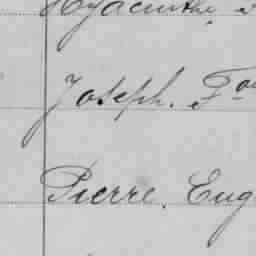 Hyacinthe
Joseph. Fo
Pierre. Eug